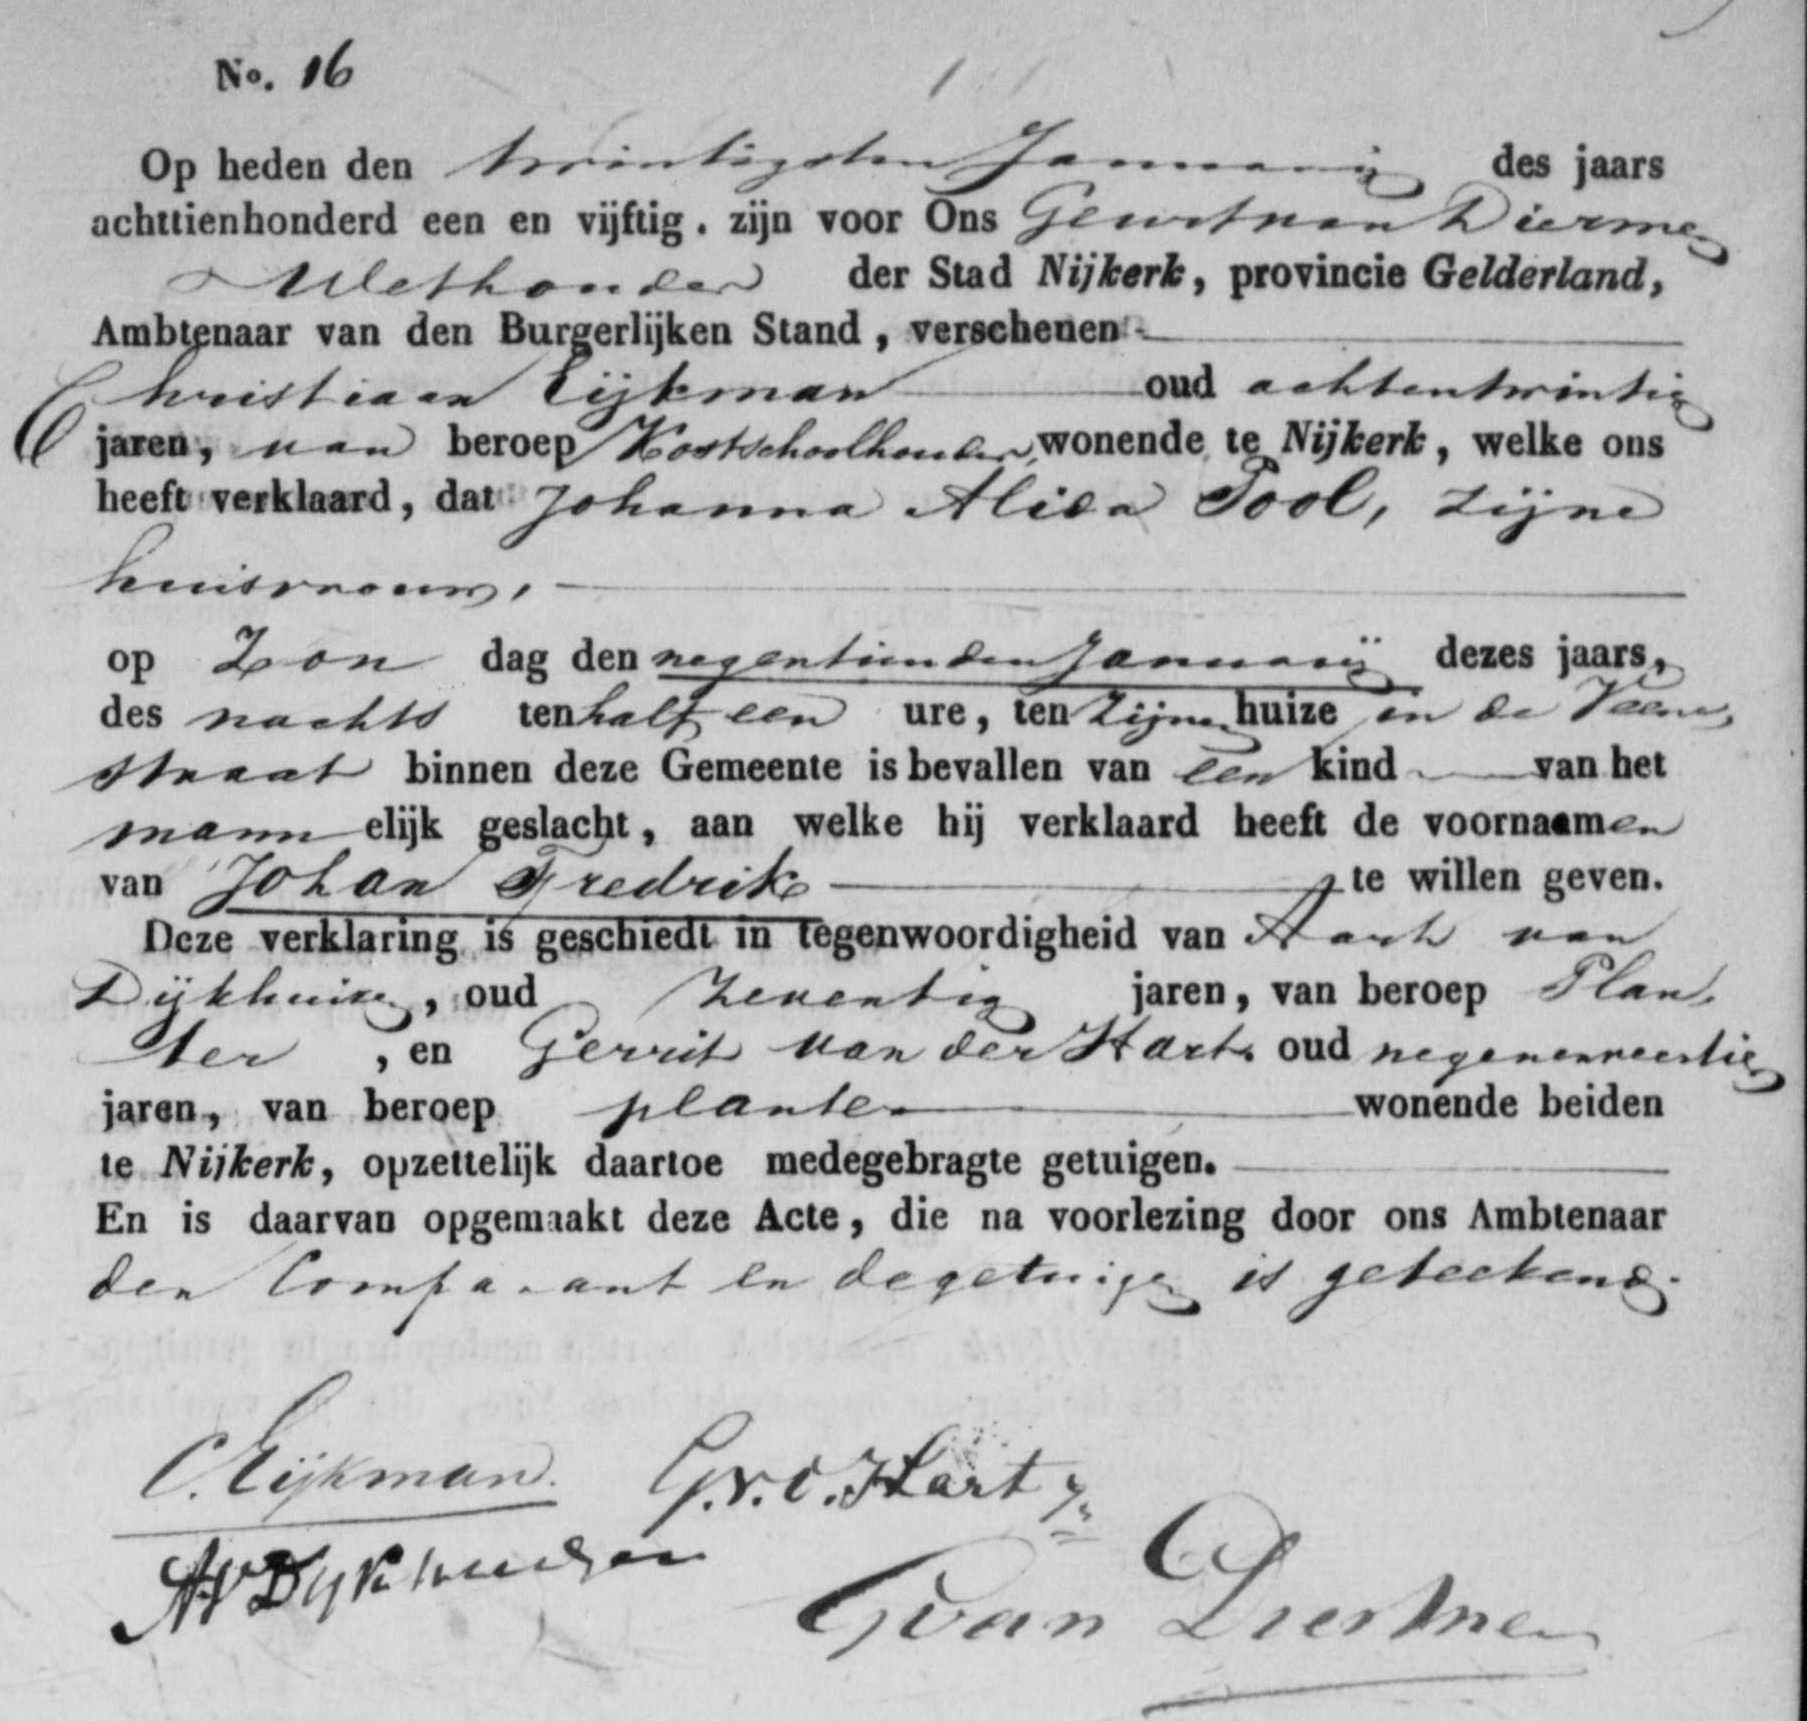 No. 16
Op heden den twintigsten Januarij des jaars
achttienhonderd een en vijftig. zijn voor Ons Geurt van Diermen
Wethouder der Stad Nijkerk, provincie Gelderland,
Ambtenaar van den Burgerlijken Stand, verschenen
Christiaan Eijkman oud achtentwintig
jaren, van beroep Kostschoolhouder, wonende te Nijkerk, welke ons
heeft verklaard, dat Johanna Alida Pool, zijne
huisvrouw,
op Zon dag den negentienden Januarij dezes jaars,
des nachts ten half een ure, ten zijnen huize in de Veene
straat binnen deze Gemeente is bevallen van een kind van het
mann elijk geslacht, aan welke hij verklaard heeft de voornaamen
van Johan Fredrik te willen geven.
Deze verklaring is geschiedt in tegenwoordigheid van Aart van
Dijkhuizen, oud zeventig jaren, van beroep Plan
ter, en Gerrit van der Hart oud negenenveertig
jaren, van beroep planter wonende beiden
te Nijkerk, opzettelijk daartoe medegebragte getuigen.
En is daarvan opgemaakt deze Acte, die na voorlezing door ons Ambtenaar
den Comparant en de getuigen is geteekend.
C. Eijkman. G. v. d. Hart
AvDykhuizen
G van Diermen